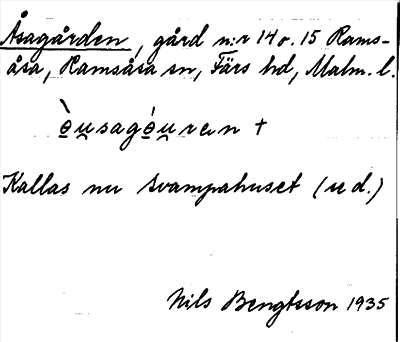 Åsagården, gård n:r 14 o. 15 Rams-
åsa, Ramsåsa sn, Färs hd, Malm. l.
ò̠u̯sagó̠u̯ren +
Kallas nu Svampahuset (u d.)
Nils Bengtsson 1935